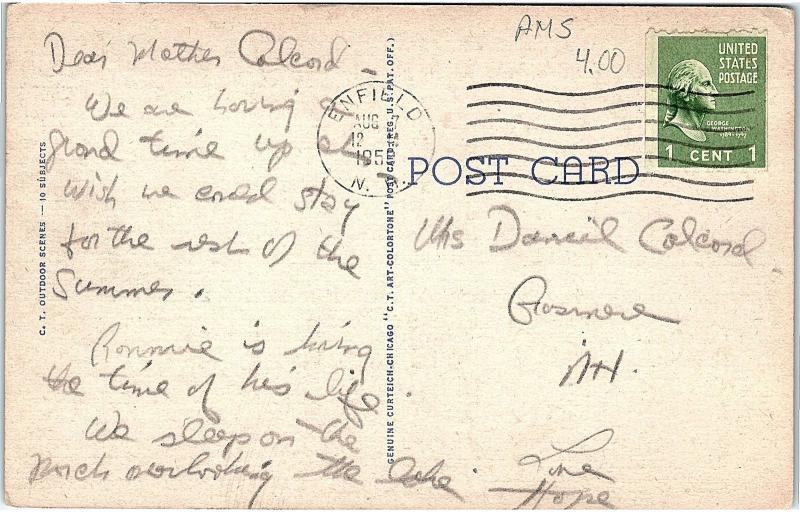 Dear Mother Colcord -
We are having a
grand time up
Wish we could stay
for the rest of the
Summer.
Ronnie is having
the time of his life.
We sleep on the
porch overlooking the lake.
Love
Hope
AMS
4.00
ENFIELD
AUG
12
195
N. H.
UNITED
STATES
POSTAGE
GEORGE
WASHINGTON
1789-1797
1 CENT 1
POST CARD
Mrs Daniel Colcord
N.H.
C. T. OUTDOOR SCENES — 10 SUBJECTS
GENUINE CURTEICH-CHICAGO "C.T. ART-COLORTONE" POST CARD (REG. U.S. PAT. OFF.)